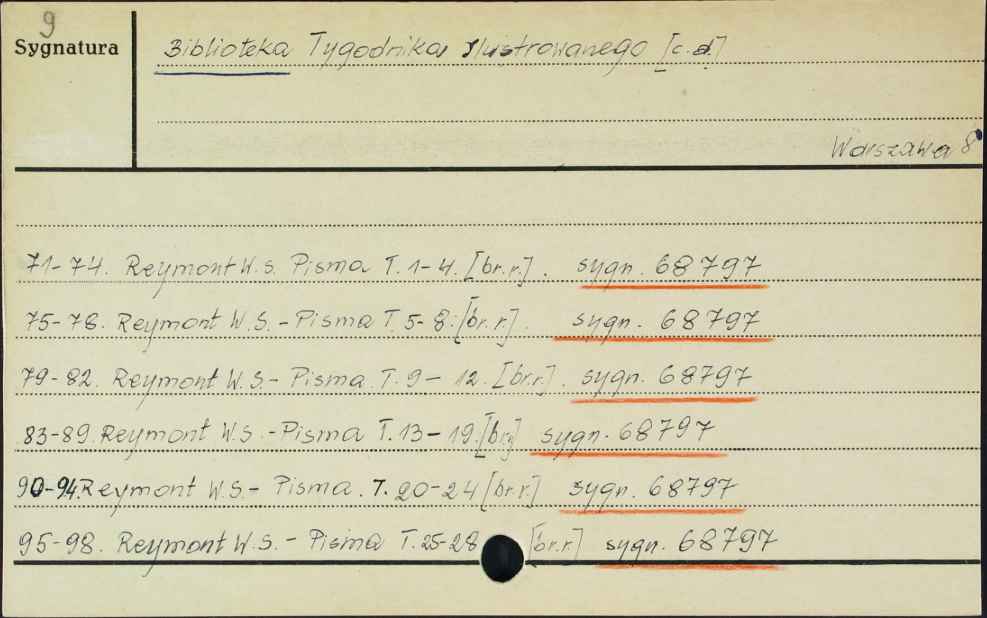 9
Sygnatura
Biblioteka Tygodnika Ilustrowanego [c.d]
Warszawa 8°
71-74. Reymont W.S. Pisma T. 1-4. [br.r.]. sygn. 68797
75-78. Reymont W.S. - Pisma T. 5-8. [br.r.]. sygn. 68797
79-82. Reymont W.S. - Pisma. T. 9-12. [br.r]. sygn. 68797
83-89. Reymont W.S. - Pisma T. 13-19. [br] sygn. 68797
90-94. Reymont W.S. - Pisma. T. 20-24 [br.r.] sygn. 68797
95-98. Reymont W.S. - Pisma T. 25-28 [br.r.] sygn. 68797